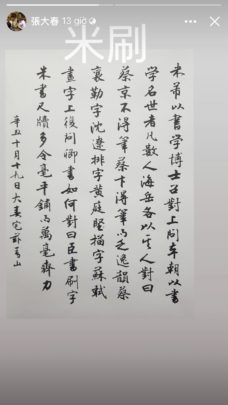 張大春 13 giờ
米刷
米芾以書學博士召對上問本朝以書
學名世者凡數人海岳各以其人對曰
蔡京不得筆蔡卞得筆而乏逸韻蔡
襄勒字沈遼排字黃庭堅描字蘇軾
畫字上復問卿書如何對曰臣書刷字
米書尺牘多令毫平鋪而萬毫齊力
辛丑十月十九日大春